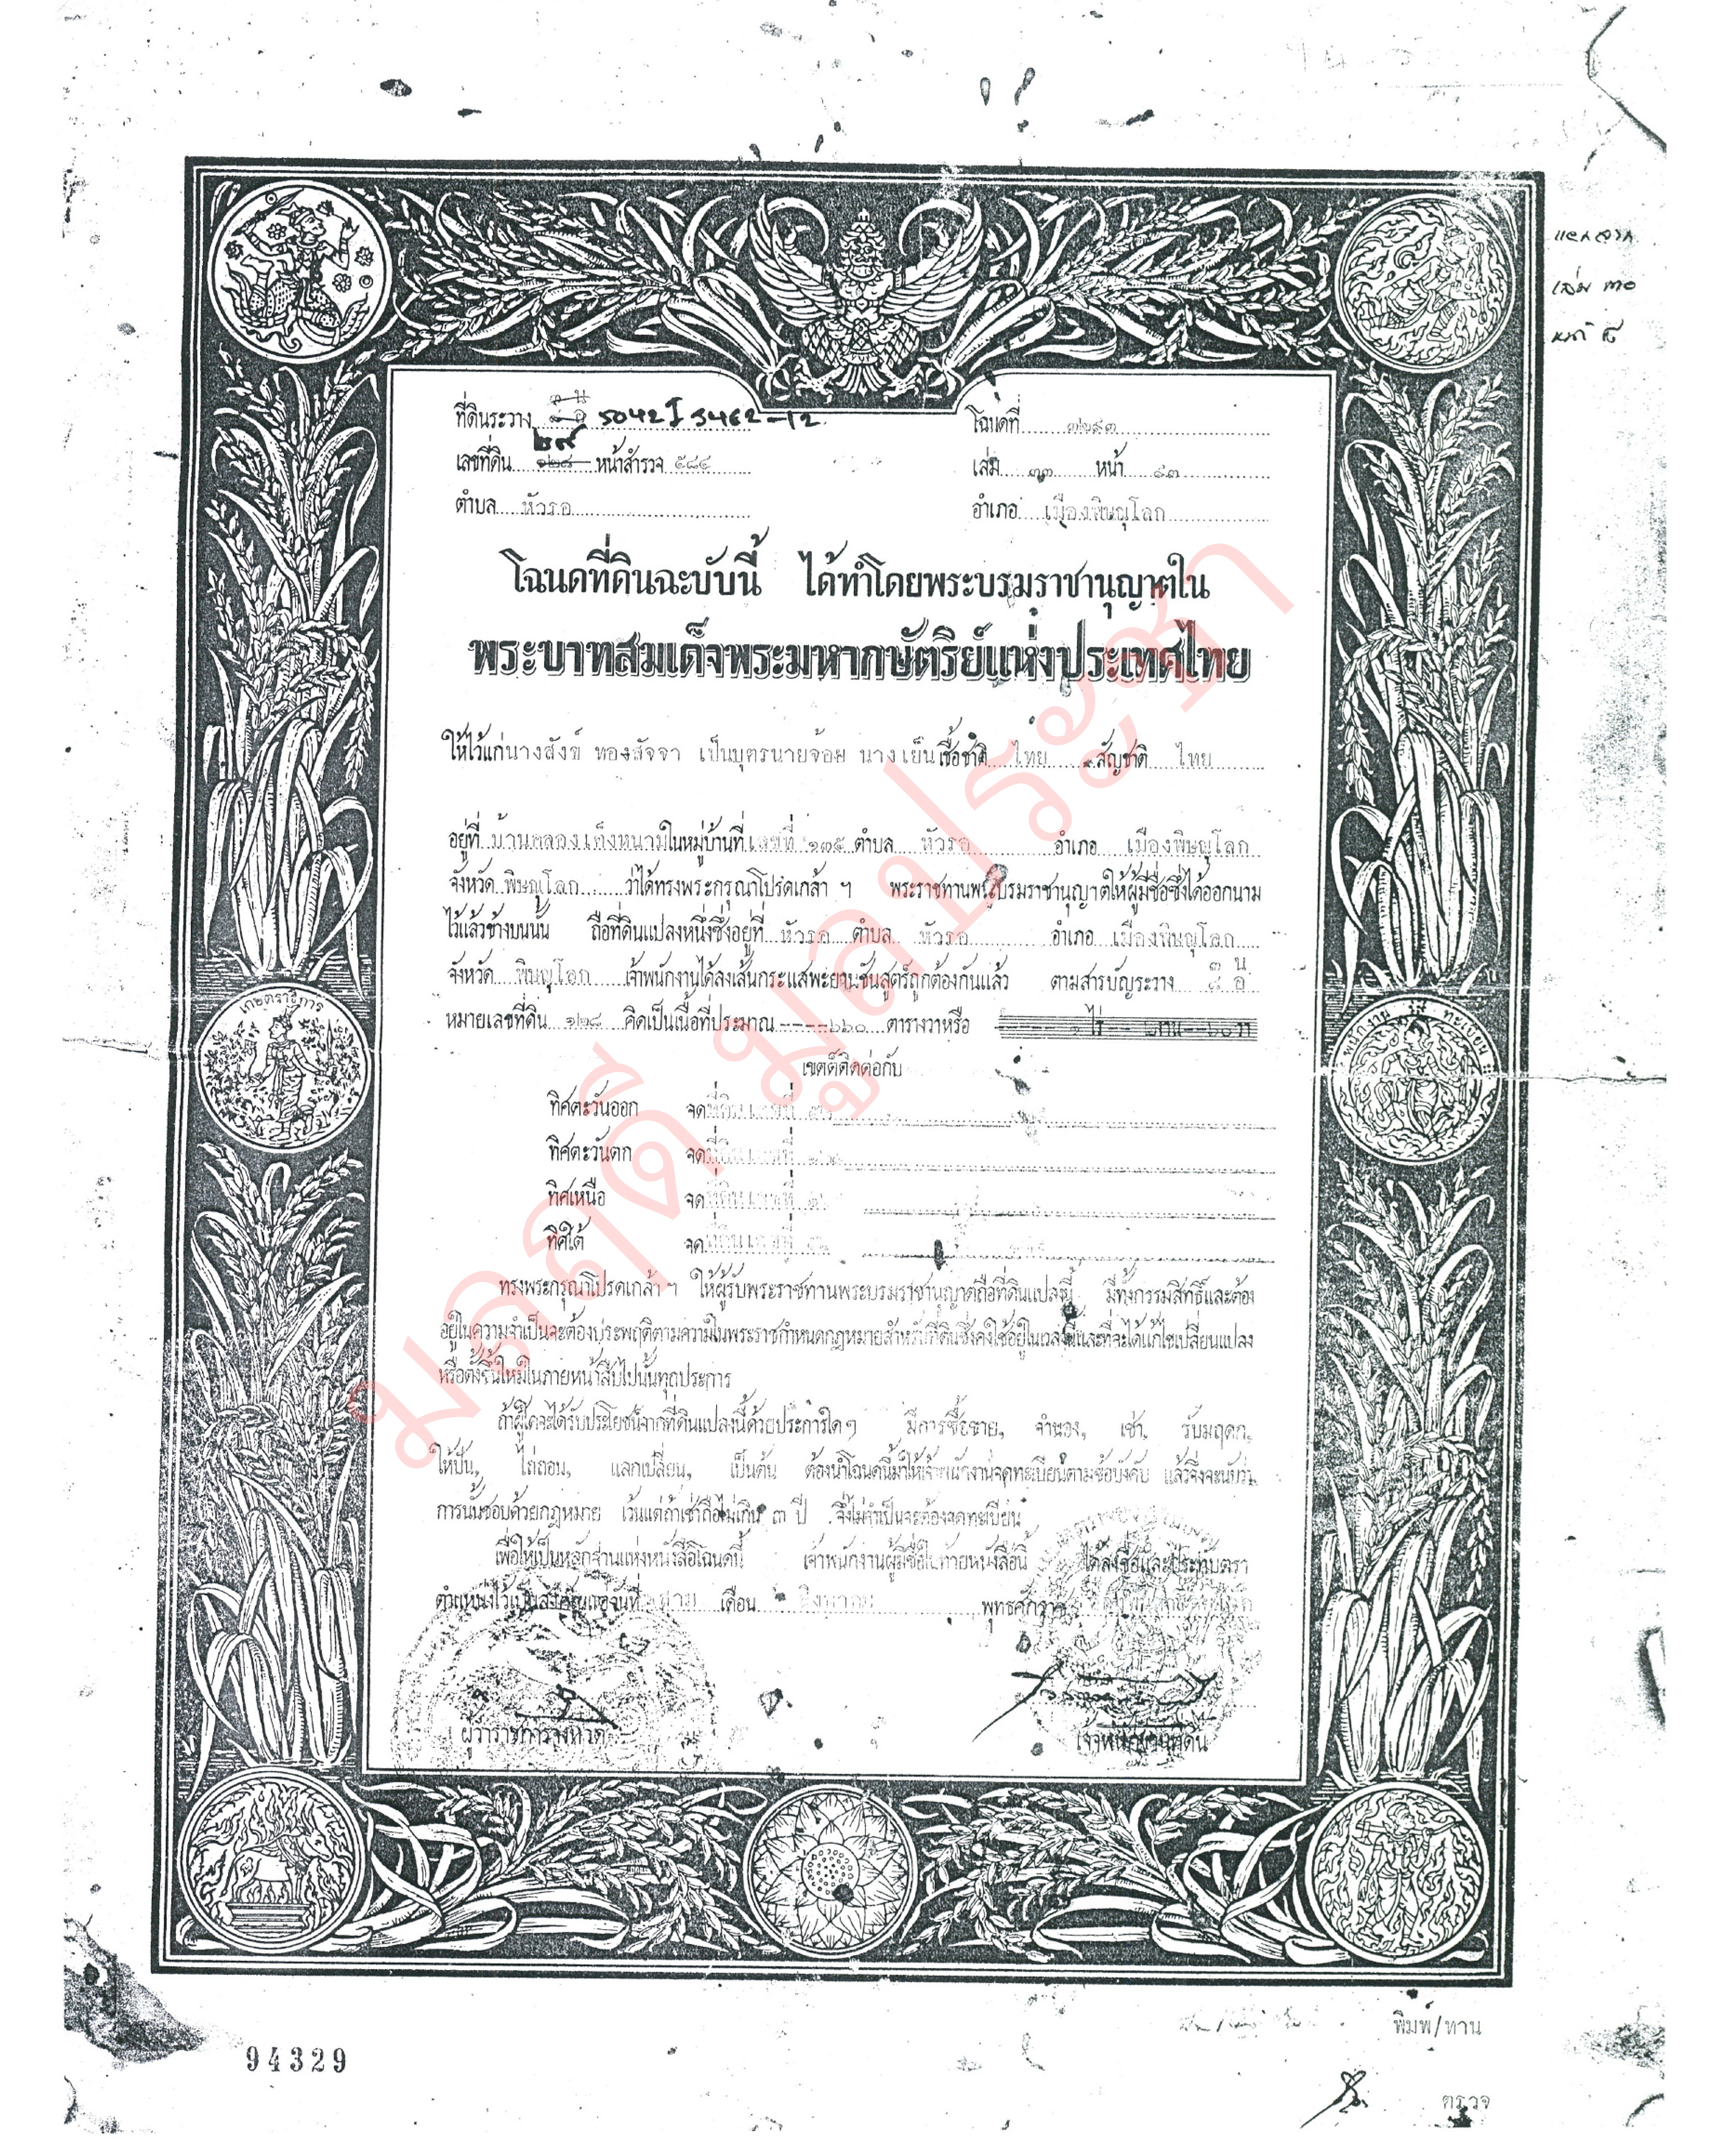 แยกจาก
เล่ม ๓๐
หน้า ๕
ที่ดินระวาง 5042 I 3462-12
โฉนดที่ ๗๒๙๓
เลขที่ดิน ๒๙ ๑๒๘ หน้าสำรวจ ๕๘๔
เล่ม ๗๓ หน้า ๙๓
ตำบล หัวรอ
อำเภอ เมืองพิษณุโลก
โฉนดที่ดินฉะบับนี้ ได้ทำโดยพระบรมราชานุญาตใน
พระบาทสมเด็จพระมหากษัตริย์แห่งประเทศไทย
ให้ไว้แก่ นางสังข์ ทองสัจจา เป็นบุตรนายจ้อย นางเย็น เชื้อชาติ ไทย สัญชาติ ไทย
อยู่ที่ บ้านคลองเต็งหนาม ในหมู่บ้านที่ เลขที่ ๑๓๕ ตำบล หัวรอ อำเภอ เมืองพิษณุโลก
จังหวัด พิษณุโลก ว่าได้ทรงพระกรุณาโปรดเกล้า ฯ พระราชทานพระบรมราชานุญาตให้ผู้มีชื่อซึ่งได้ออกนาม
ไว้แล้วข้างบนนั้น ถือที่ดินแปลงหนึ่งซึ่งอยู่ที่ หัวรอ ตำบล หัวรอ อำเภอ เมืองพิษณุโลก
จังหวัด พิษณุโลก เจ้าพนักงานได้ลงเส้นกระแสพะยานชันสูตร์ถูกต้องกันแล้ว ตามสารบัญระวาง ๓ น ๕ อ
หมายเลขที่ดิน ๑๒๘ คิดเป็นเนื้อที่ประมาณ ----๖๖๐ ตารางวาหรือ
เขตต์ติดต่อกับ
ทิศตะวันออก จด ที่ดินเลขที่
ทิศตะวันตก จด ที่ดินเลขที่
ทิศเหนือ จด ที่ดินเลขที่
ทิศใต้ จด ที่ดินเลขที่
ทรงพระกรุณาโปรดเกล้า ฯ ให้ผู้รับพระราชทานพระบรมราชานุญาตถือที่ดินแปลงนี้ มีทั้งกรรมสิทธิ์และต้อง
อยู่ในความจำเป็นจะต้องประพฤติตามความในพระราชกำหนดกฎหมายสำหรับที่ดินซึ่งคงใช้อยู่ในเวลานี้และที่จะได้แก้ไขเปลี่ยนแปลง
หรือตั้งขึ้นใหม่ในภายหน้าสืบไปนั้นทุกประการ
ถ้าผู้ใดจะได้รับประโยชน์จากที่ดินแปลงนี้ด้วยประการใด ๆ มีการซื้อขาย, จำนอง, เช่า, รับมฤดก,
ให้ปัน, ไถ่ถอน, แลกเปลี่ยน, เป็นต้น ต้องนำโฉนดนี้มาให้เจ้าพนักงานจดทะเบียนตามข้อบังคับ แล้วจึ่งจะนับว่า
การนั้นชอบด้วยกฎหมาย เว้นแต่ถ้าเช่าถือไม่เกิน ๓ ปี จึ่งไม่จำเป็นจะต้องจดทะเบียน
เพื่อให้เป็นหลักฐานแห่งหนังสือโฉนดนี้ เจ้าพนักงานผู้มีชื่อในท้ายหนังสือนี้ ได้ลงชื่อและประทับตรา
ตำแหน่งไว้เป็นสำคัญแต่วันที่ เดือน สิงหาคม พุทธศักราช
ผู้ว่าราชการจังหวัด
เจ้าพนักงานที่ดิน
เกษตราธิการ
พนักงาน ทะเบียน
มลฤดี มูลประชา
พิมพ์/ทาน
94329
ตรวจ